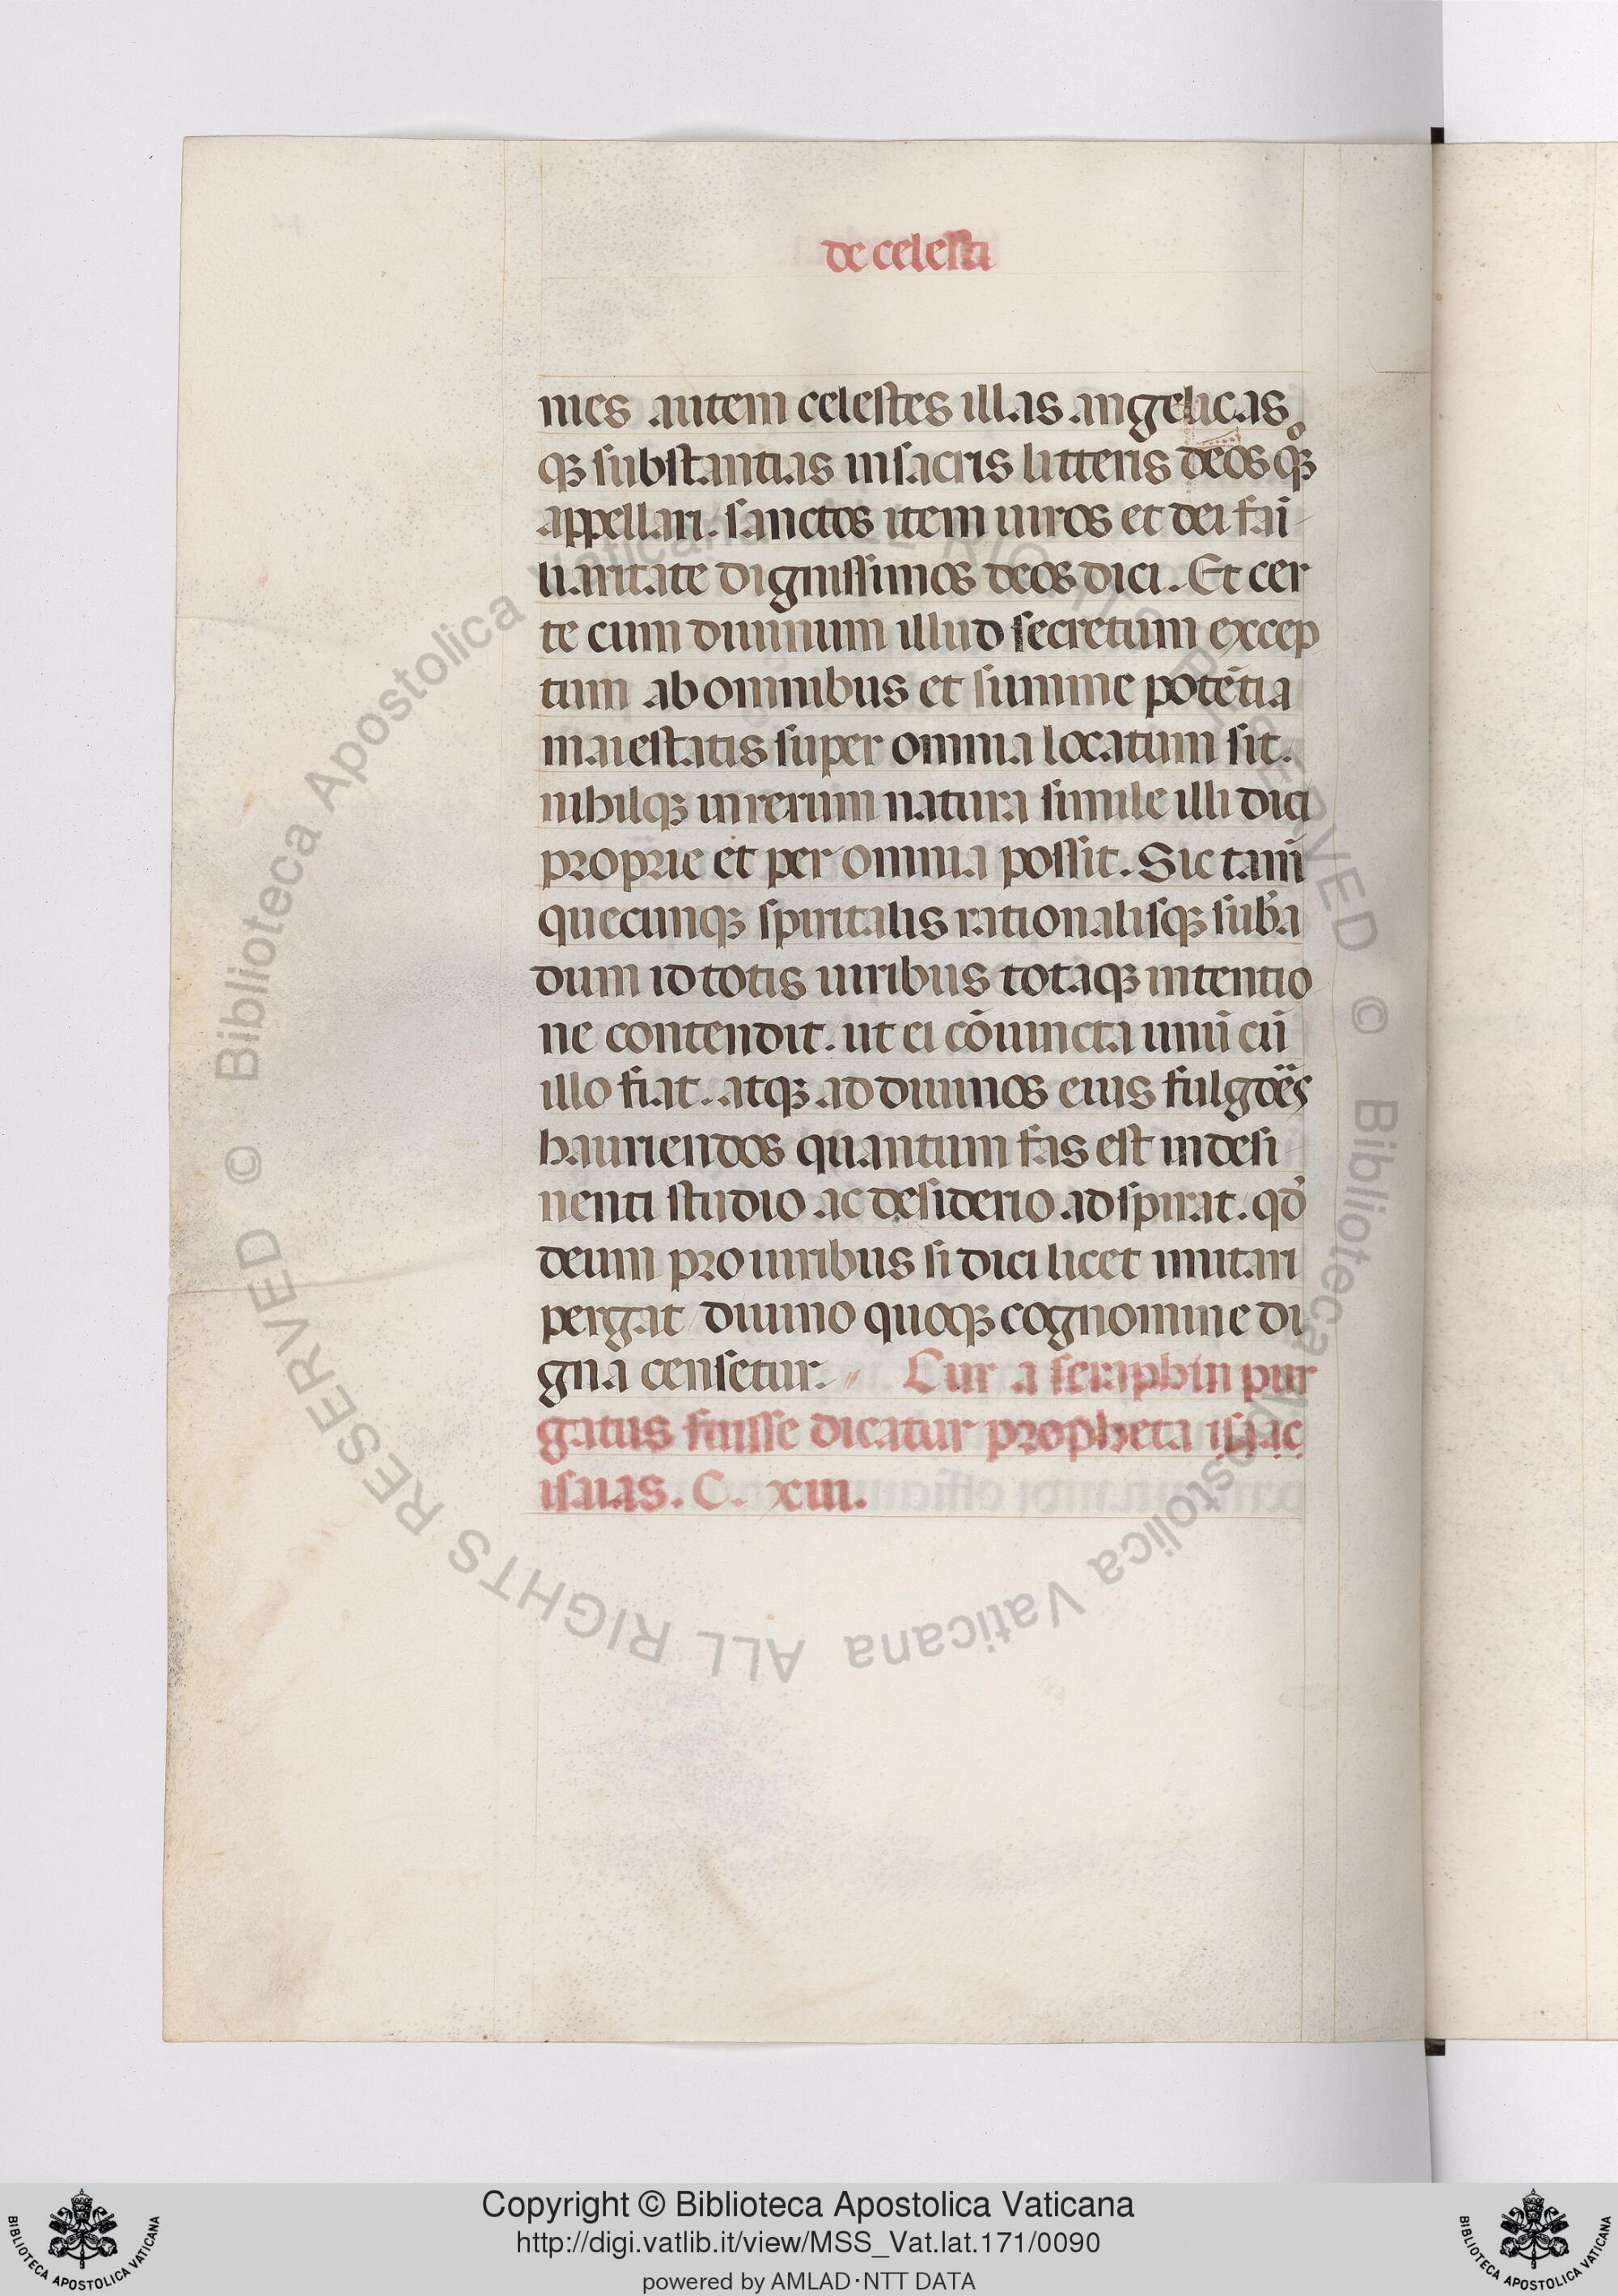 de celesti
nies autem celestes illas angelicas
qꝫ substantias in sacris litteris deos qͦꝫ
appellari. sanctos item uiros et dei fai̅
liaritate dignissimos deos dici. Et cer
te cum diuinum illud secretum excep
tum ab omnibus et summe pote̅tia
maiestatis super omnia locatum sit.
nihilqꝫ in rerum natura simile illi dici
proprie et per omnia possit. Sic tam̅
quecunqꝫ spiritalis rationalisqꝫ sub̅a
dum id totis uiribus totaqꝫ intentio
ne contendit. ut ei co̅iuncta unu̅ cu̅
illo fiat. atqꝫ ad diuinos eius fulgo̅es
hauriendos quantum fas est indesi
nenti studio ac desiderio ad spirat. qd̅
deum pro uiribus si dici licet imitari
pergat diuino quoqꝫ cognomine di
gna censetur. Cur a seraphin pur
gatus fuisse dicatur propheta isaac
isaias. C. xiii.
Copyright © Biblioteca Apostolica Vaticana
http://digi.vatlib.it/view/MSS_Vat.lat.171/0090
powered by AMLAD·NTT DATA
BIBLIOTECA APOSTOLICA VATICANA
BIBLIOTECA APOSTOLICA VATICANA
© Biblioteca Apostolica Vaticana ALL RIGHTS RESERVED © Biblioteca Apostolica Vaticana ALL RIGHTS RESERVED